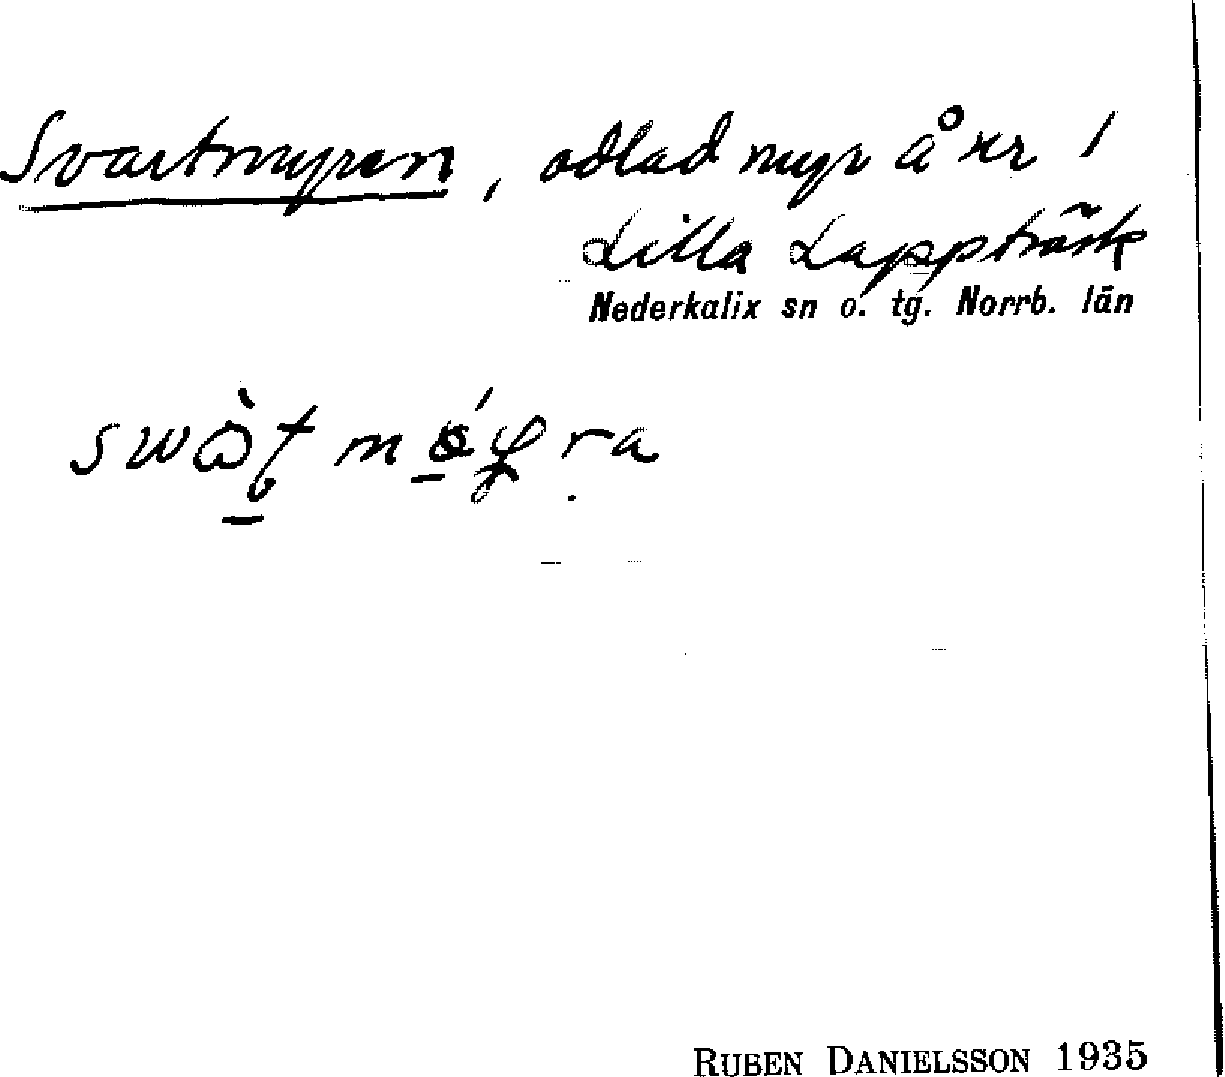 Svartmyren, odlad myr å nr 1
Lilla Lappträsk
Nederkalix sn o. tg. Norrb. län
RUBEN DANIELSSON 1935